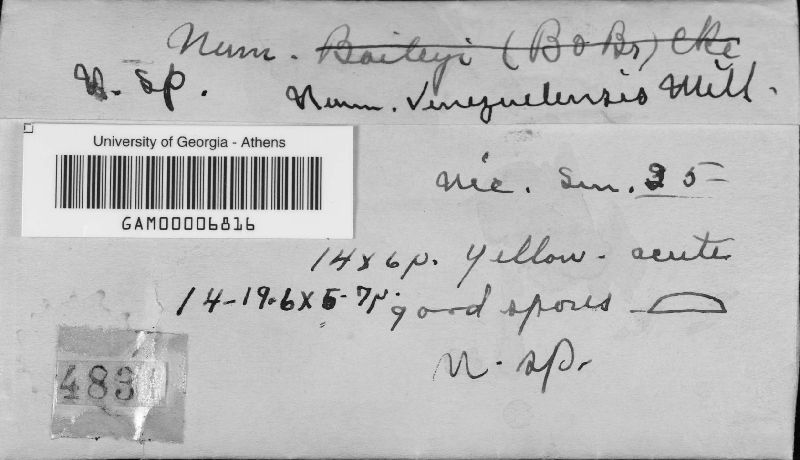 Num. Baileyi (B & Br) Cke
N. sp.
Num. Venezuelensis Mill.
University of Georgia - Athens
GAM00006816
Nic. Sm. 35
14 x 6µ. yellow - acute
14-19.6 x 5-7µ. good spores
n. sp.
483